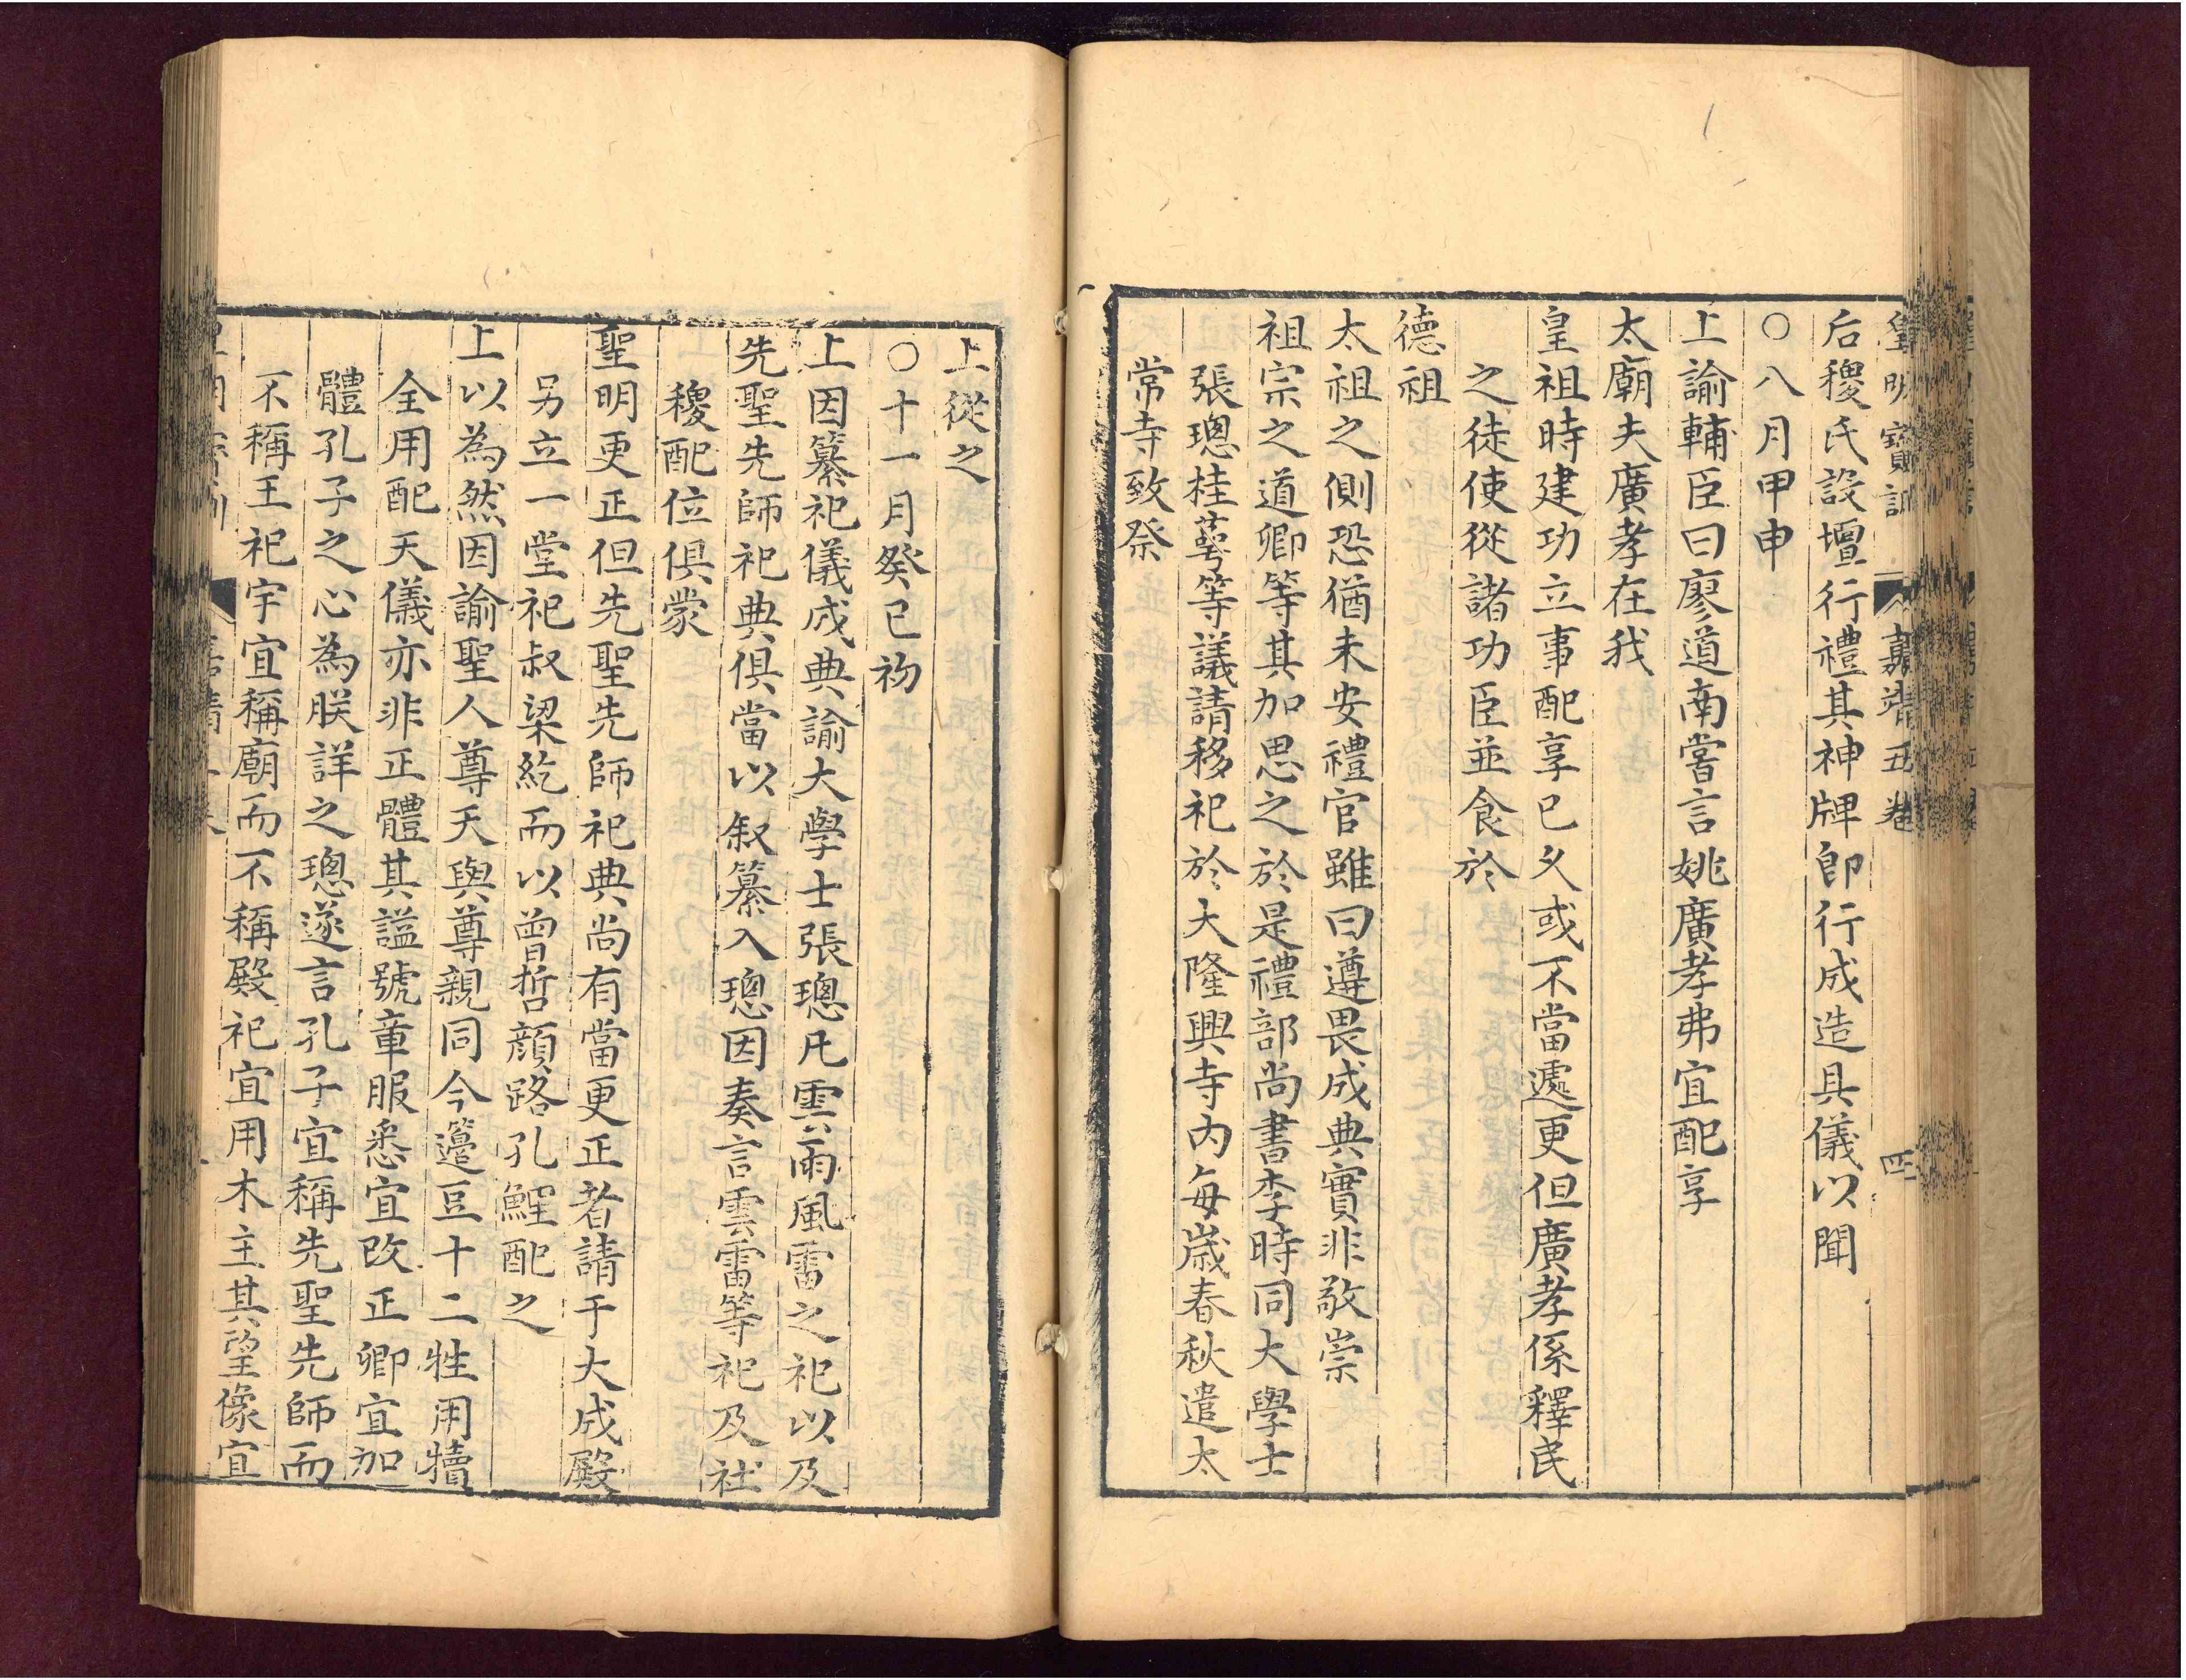 皇明寶訓 嘉靖五卷 四
后稷氏設壇行禮其神牌即行成造具儀以聞
○八月甲申
上諭輔臣曰廖道南嘗言姚廣孝弗宜配享
太廟夫廣孝在我
皇祖時建功立事配享已久或不當遽更但廣孝係釋氏
之徒使從諸功臣並食於
德祖
太祖之側恐猶未安禮官雖曰遵畏成典實非敬崇
祖宗之道卿等其加思之於是禮部尚書李時同大學士
張璁桂萼等議請移祀於大隆興寺內每歲春秋遣太
常寺致祭
上從之
○十一月癸巳初
上因纂祀儀成典諭大學士張璁凡雲雨風雷之祀以及
先聖先師祀典俱當以叙纂入璁因奏言雲雷等祀及社
稷配位俱蒙
聖明更正但先聖先師祀典尚有當更正者請于大成殿
另立一堂祀叔梁紇而以曾晳顏路孔鯉配之
上以為然因諭聖人尊天與尊親同今籩豆十二牲用犢
全用配天儀亦非正體其謚號章服悉宜改正卿宜加
體孔子之心為朕詳之璁遂言孔子宜稱先聖先師而
不稱王祀宇宜稱廟而不稱殿祀宜用木主其塑像宜